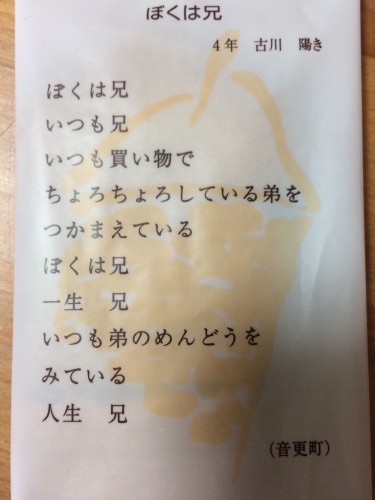 ぼくは兄
4年　古川　陽き
ぼくは兄
いつも兄
いつも買い物で
ちょろちょろしている弟を
つかまえている
ぼくは兄
一生　兄
いつも弟のめんどうを
みている
人生　兄
（音更町）